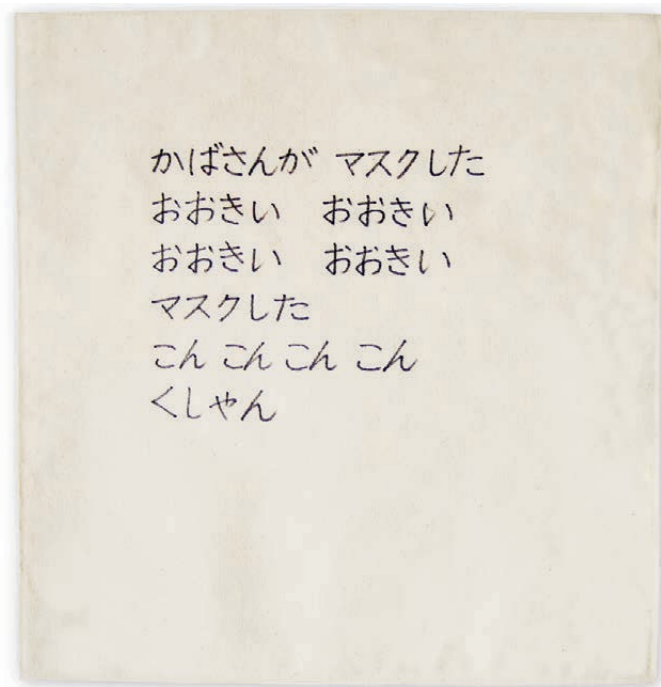 かばさんが マスクした
おおきい　おおきい
おおきい　おおきい
マスクした
こん こん こん こん
くしゃん